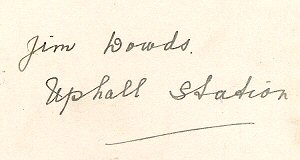 Jim Dowds.
Uphall Station